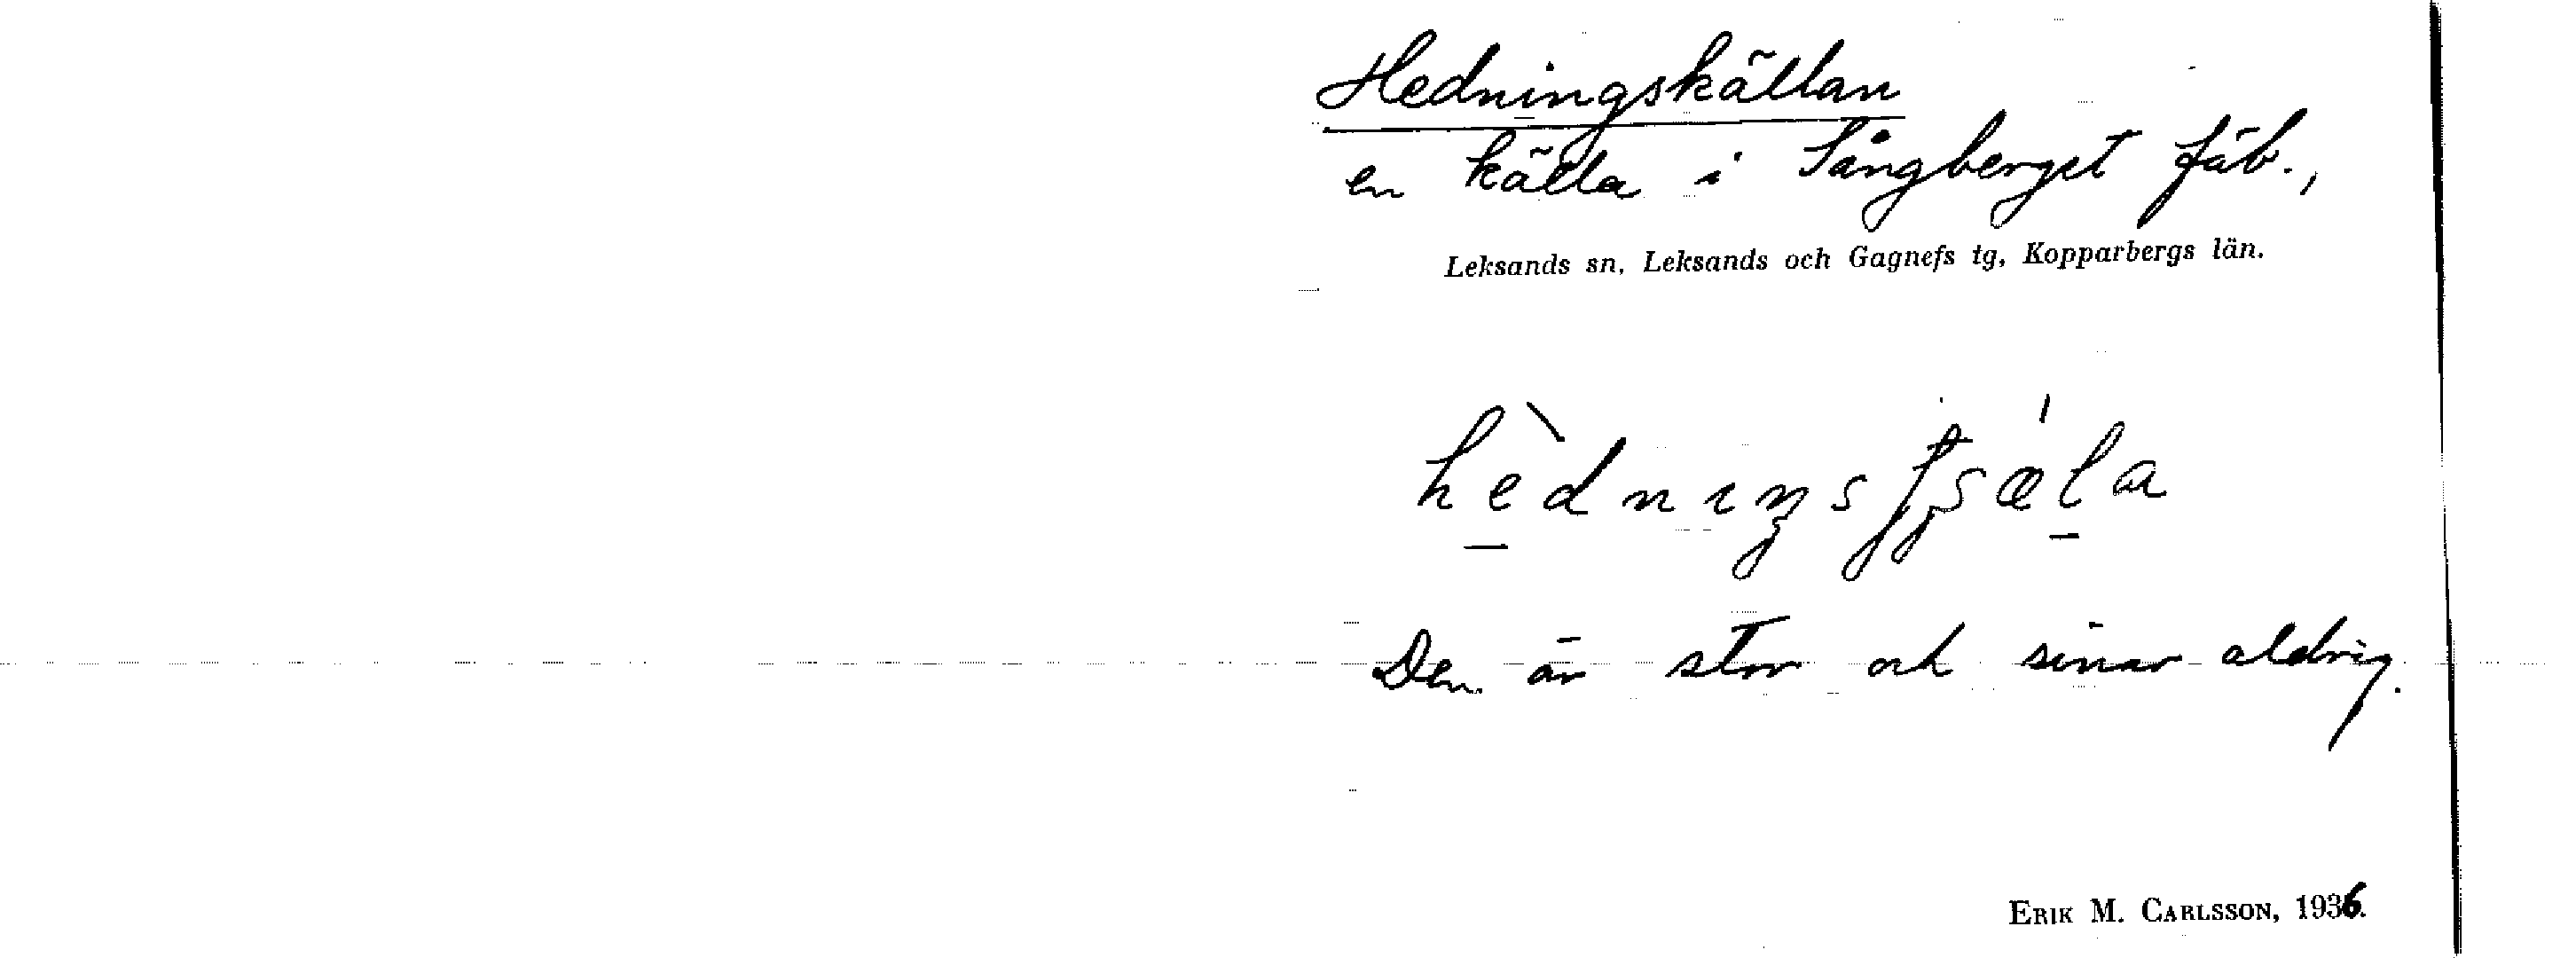 Hedningskällan
en källa i Sångberget fäb.,
Leksands sn, Leksands och Gagnefs tg, Kopparbergs län.
Den är stor och sinar aldrig.
ERIK M. CARLSSON, 1936.